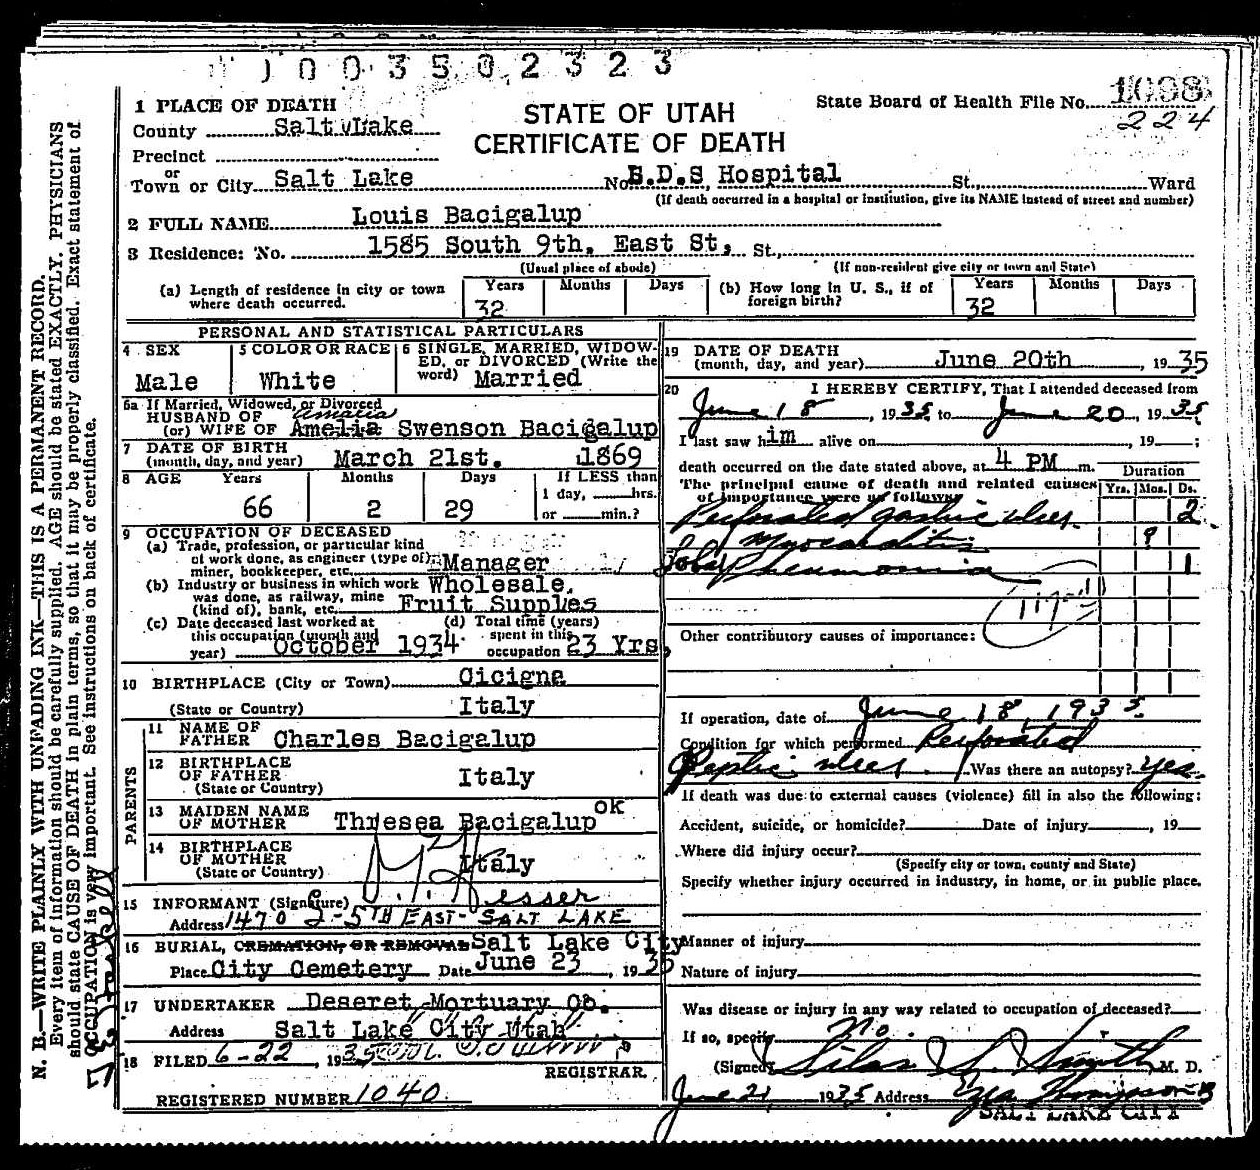 1003502323
1 PLACE OF DEATH
County Salt Lake
Precinct
or
Town or City Salt Lake
STATE OF UTAH
CERTIFICATE OF DEATH
State Board of Health File No. 1098
224
No. E.D.S Hospital St., Ward
(If death occurred in a hospital or institution, give its NAME instead of street and number)
2 FULL NAME Louis Bacigalup
3 Residence: No. 1585 South 9th. East St, St.,
(Usual place of abode) (If non-resident give city or town and State)
(a) Length of residence in city or town where death occurred. Years 32 Months Days
(b) How long in U. S., if of foreign birth? Years 32 Months Days
PERSONAL AND STATISTICAL PARTICULARS
4 SEX Male
5 COLOR OR RACE White
6 SINGLE, MARRIED, WIDOWED, or DIVORCED (Write the word) Married
6a If Married, Widowed, or Divorced
HUSBAND OF Amalia
(or) WIFE OF Amelia Swenson Bacigalup
7 DATE OF BIRTH
(month, day, and year) March 21st. 1869
8 AGE Years 66 Months 2 Days 29
If LESS than
1 day, hrs.
or min.?
9 OCCUPATION OF DECEASED
(a) Trade, profession, or particular kind
of work done, as engineer (type of),
miner, bookkeeper, etc. Manager
(b) Industry or business in which work Wholesale,
was done, as railway, mine
(kind of), bank, etc. Fruit Supples
(c) Date deceased last worked at
this occupation (month and
year) October 1934
(d) Total time (years)
spent in this
occupation 23 Yrs,
10 BIRTHPLACE (City or Town) Cicigne
(State or Country) Italy
PARENTS
11 NAME OF
FATHER Charles Bacigalup
12 BIRTHPLACE
OF FATHER Italy
(State or Country)
13 MAIDEN NAME
OF MOTHER Thresea Bacigalup ok
14 BIRTHPLACE
OF MOTHER Italy
(State or Country)
15 INFORMANT (Signature)
Address 1470 S-5TH EAST- SALT LAKE
16 BURIAL, CREMATION, OR REMOVAL Salt Lake City
Place City Cemetery Date June 23, 1935
17 UNDERTAKER Deseret Mortuary Co.
Address Salt Lake City Utah
18 FILED 6-22, 1935
REGISTRAR.
REGISTERED NUMBER 1040
19 DATE OF DEATH
(month, day, and year) June 20th 1935
20 I HEREBY CERTIFY, That I attended deceased from
June 18, 1935 to June 20, 1935
I last saw him alive on , 19 ;
death occurred on the date stated above, at 4 PM m.
The principal cause of death and related causes
of importance were as follows:
Duration
Yrs. Mos. Ds.
Perforated gastric ulcer 2
Myocarditis ?
Lobar Pneumonia 1
Other contributory causes of importance:
If operation, date of June 18, 1935.
Condition for which performed Perforated
Peptic ulcer. Was there an autopsy? yes
If death was due to external causes (violence) fill in also the following:
Accident, suicide, or homicide? Date of injury , 19
Where did injury occur?
(Specify city or town, county and State)
Specify whether injury occurred in industry, in home, or in public place.
Manner of injury
Nature of injury
Was disease or injury in any way related to occupation of deceased?
If so, specify No.
(Signed) Silas S. Smith M. D.
June 21, 1935 Address
SALT LAKE CITY
N. B.—WRITE PLAINLY WITH UNFADING INK—THIS IS A PERMANENT RECORD.
Every item of information should be carefully supplied. AGE should be stated EXACTLY. PHYSICIANS
should state CAUSE OF DEATH in plain terms, so that it may be properly classified. Exact statement of
OCCUPATION is very important. See instructions on back of certificate.